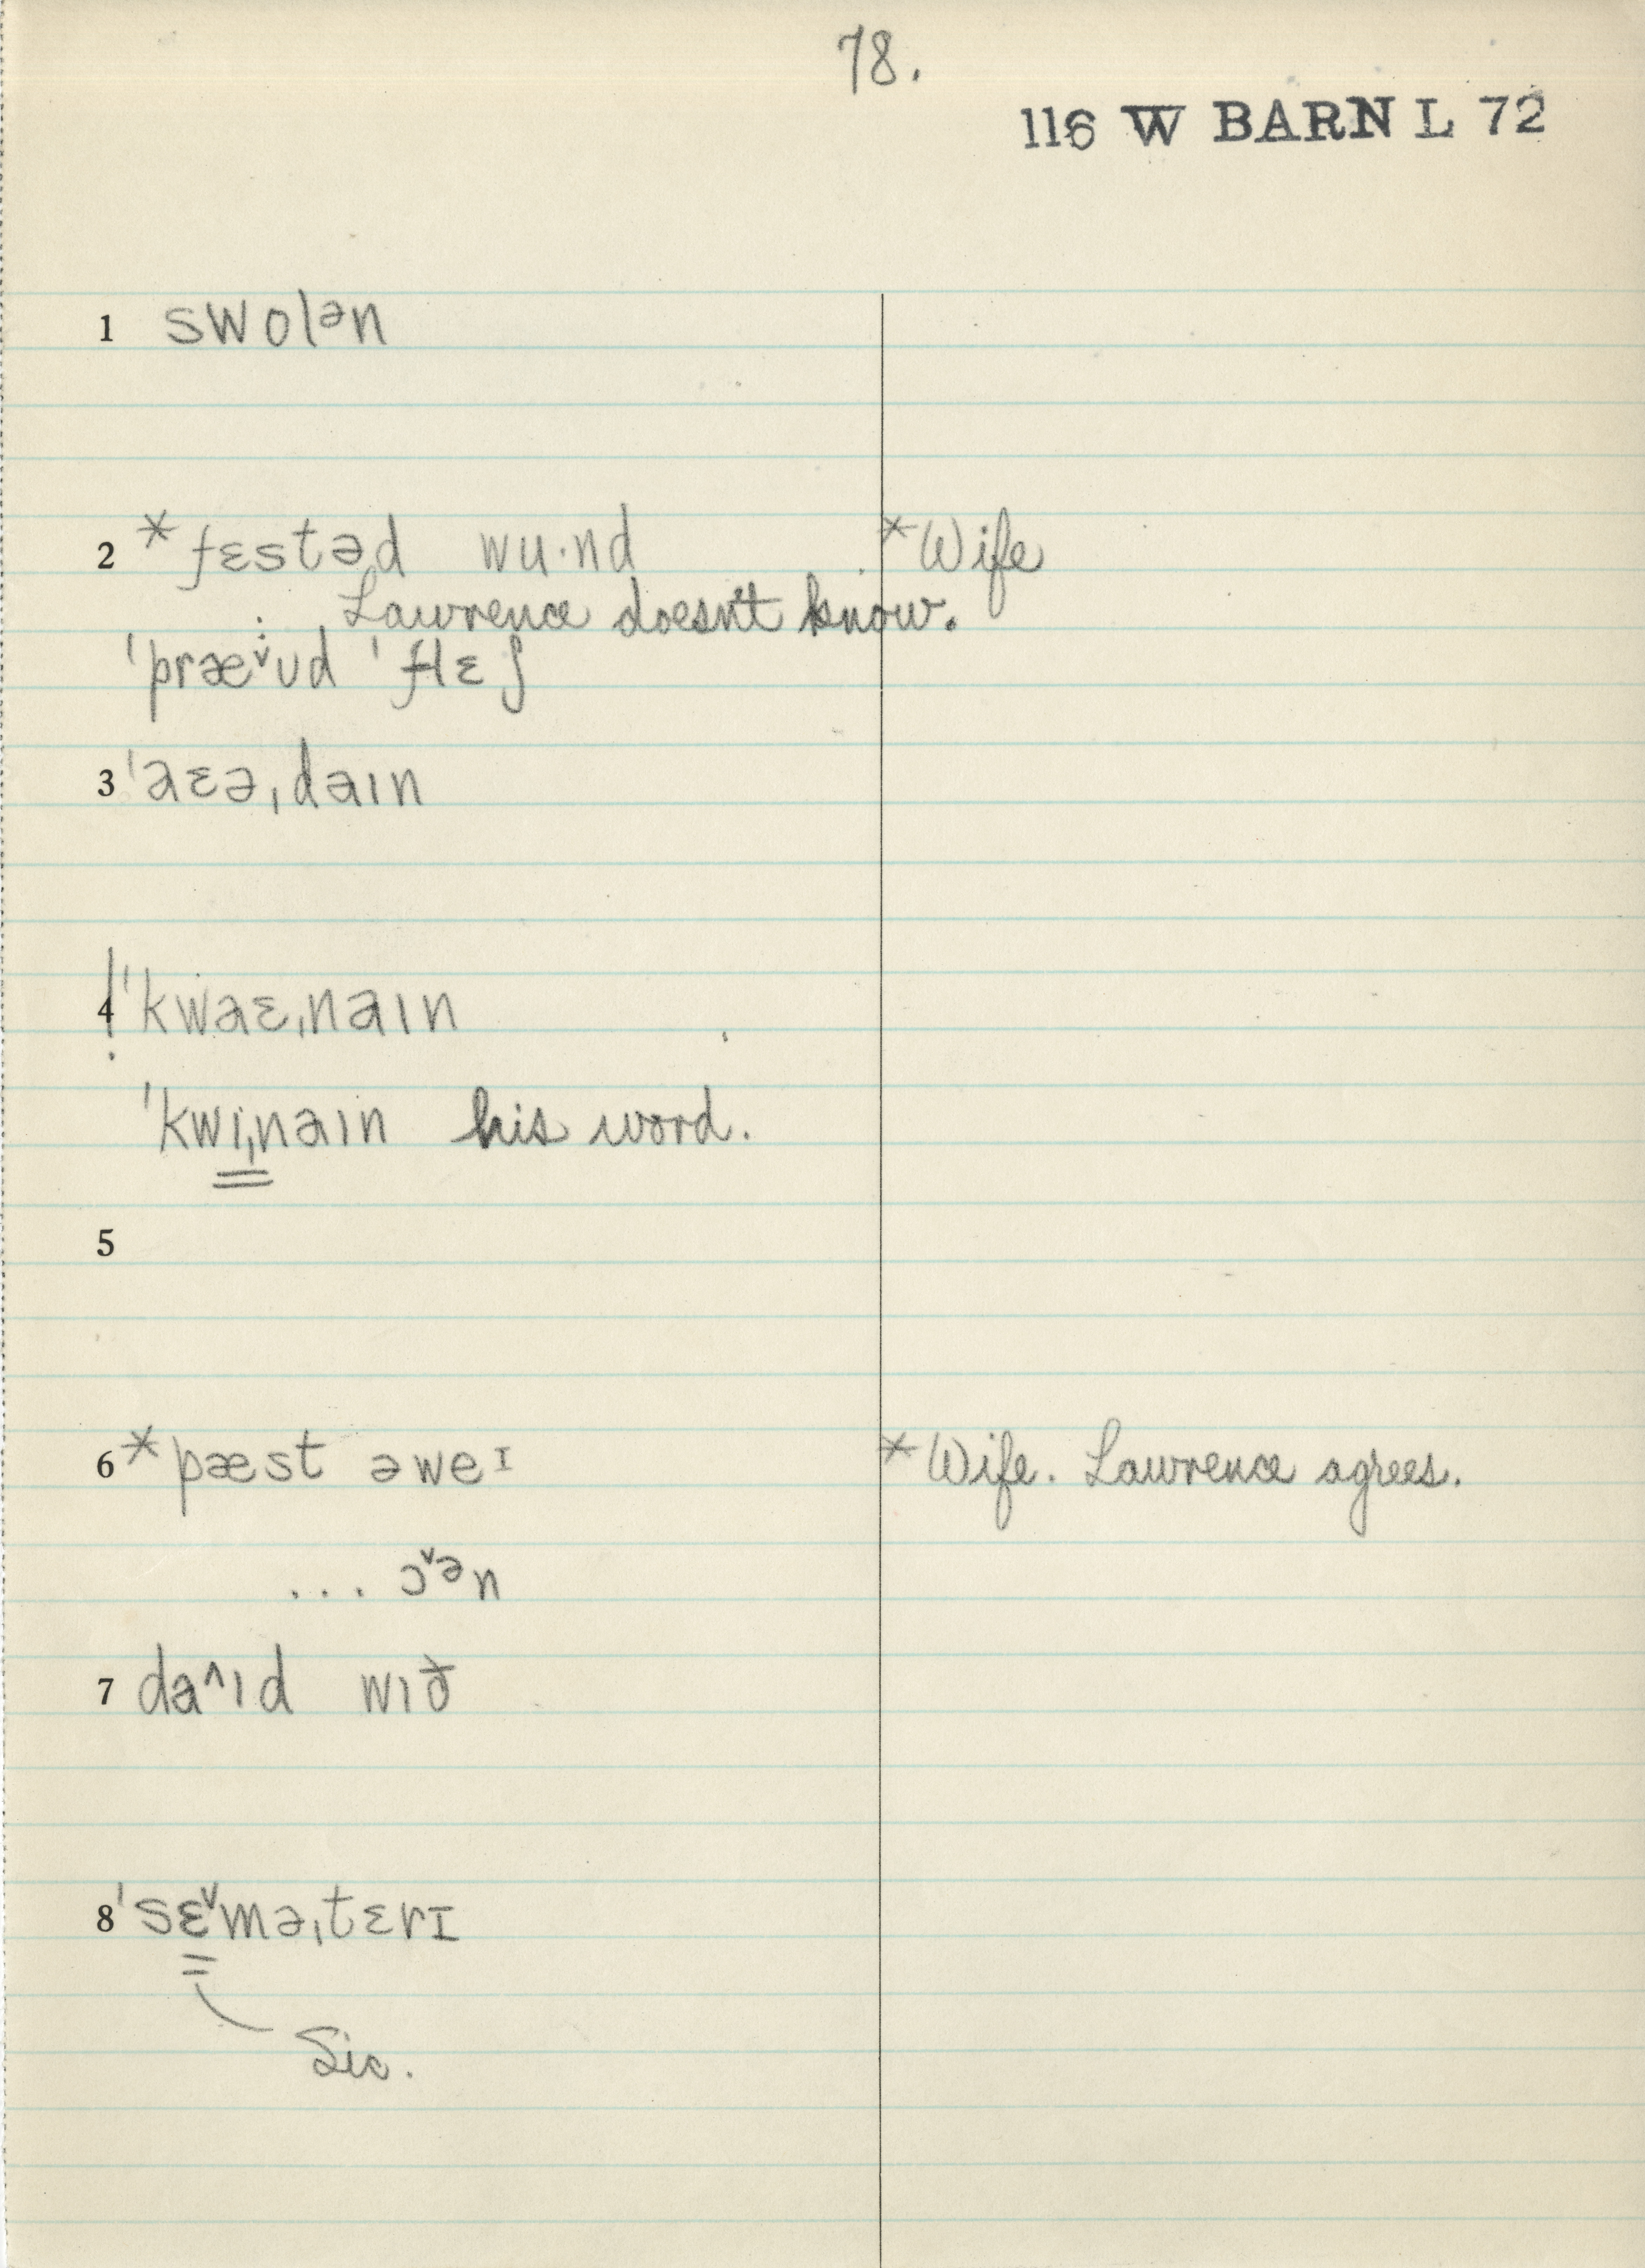 78.
116 W BARN L 72
1 swolᵊn
2 *fɛstəd wu·nd *Wife
Lawrence doesn't know.
ˈpræˇʊd ˈflɛʃ
3 ˈaɛəˌdaɪn
4 !ˈkwaɛˌnaɪn
ˈkwɪˌnaɪn his word.
5
6 *pæst əweᶦ *Wife. Lawrence agrees.
... ɔˇᵊn
7 da^ɪd wɪð
8 ˈsɛˇməˌtɛrɪ
Sic.